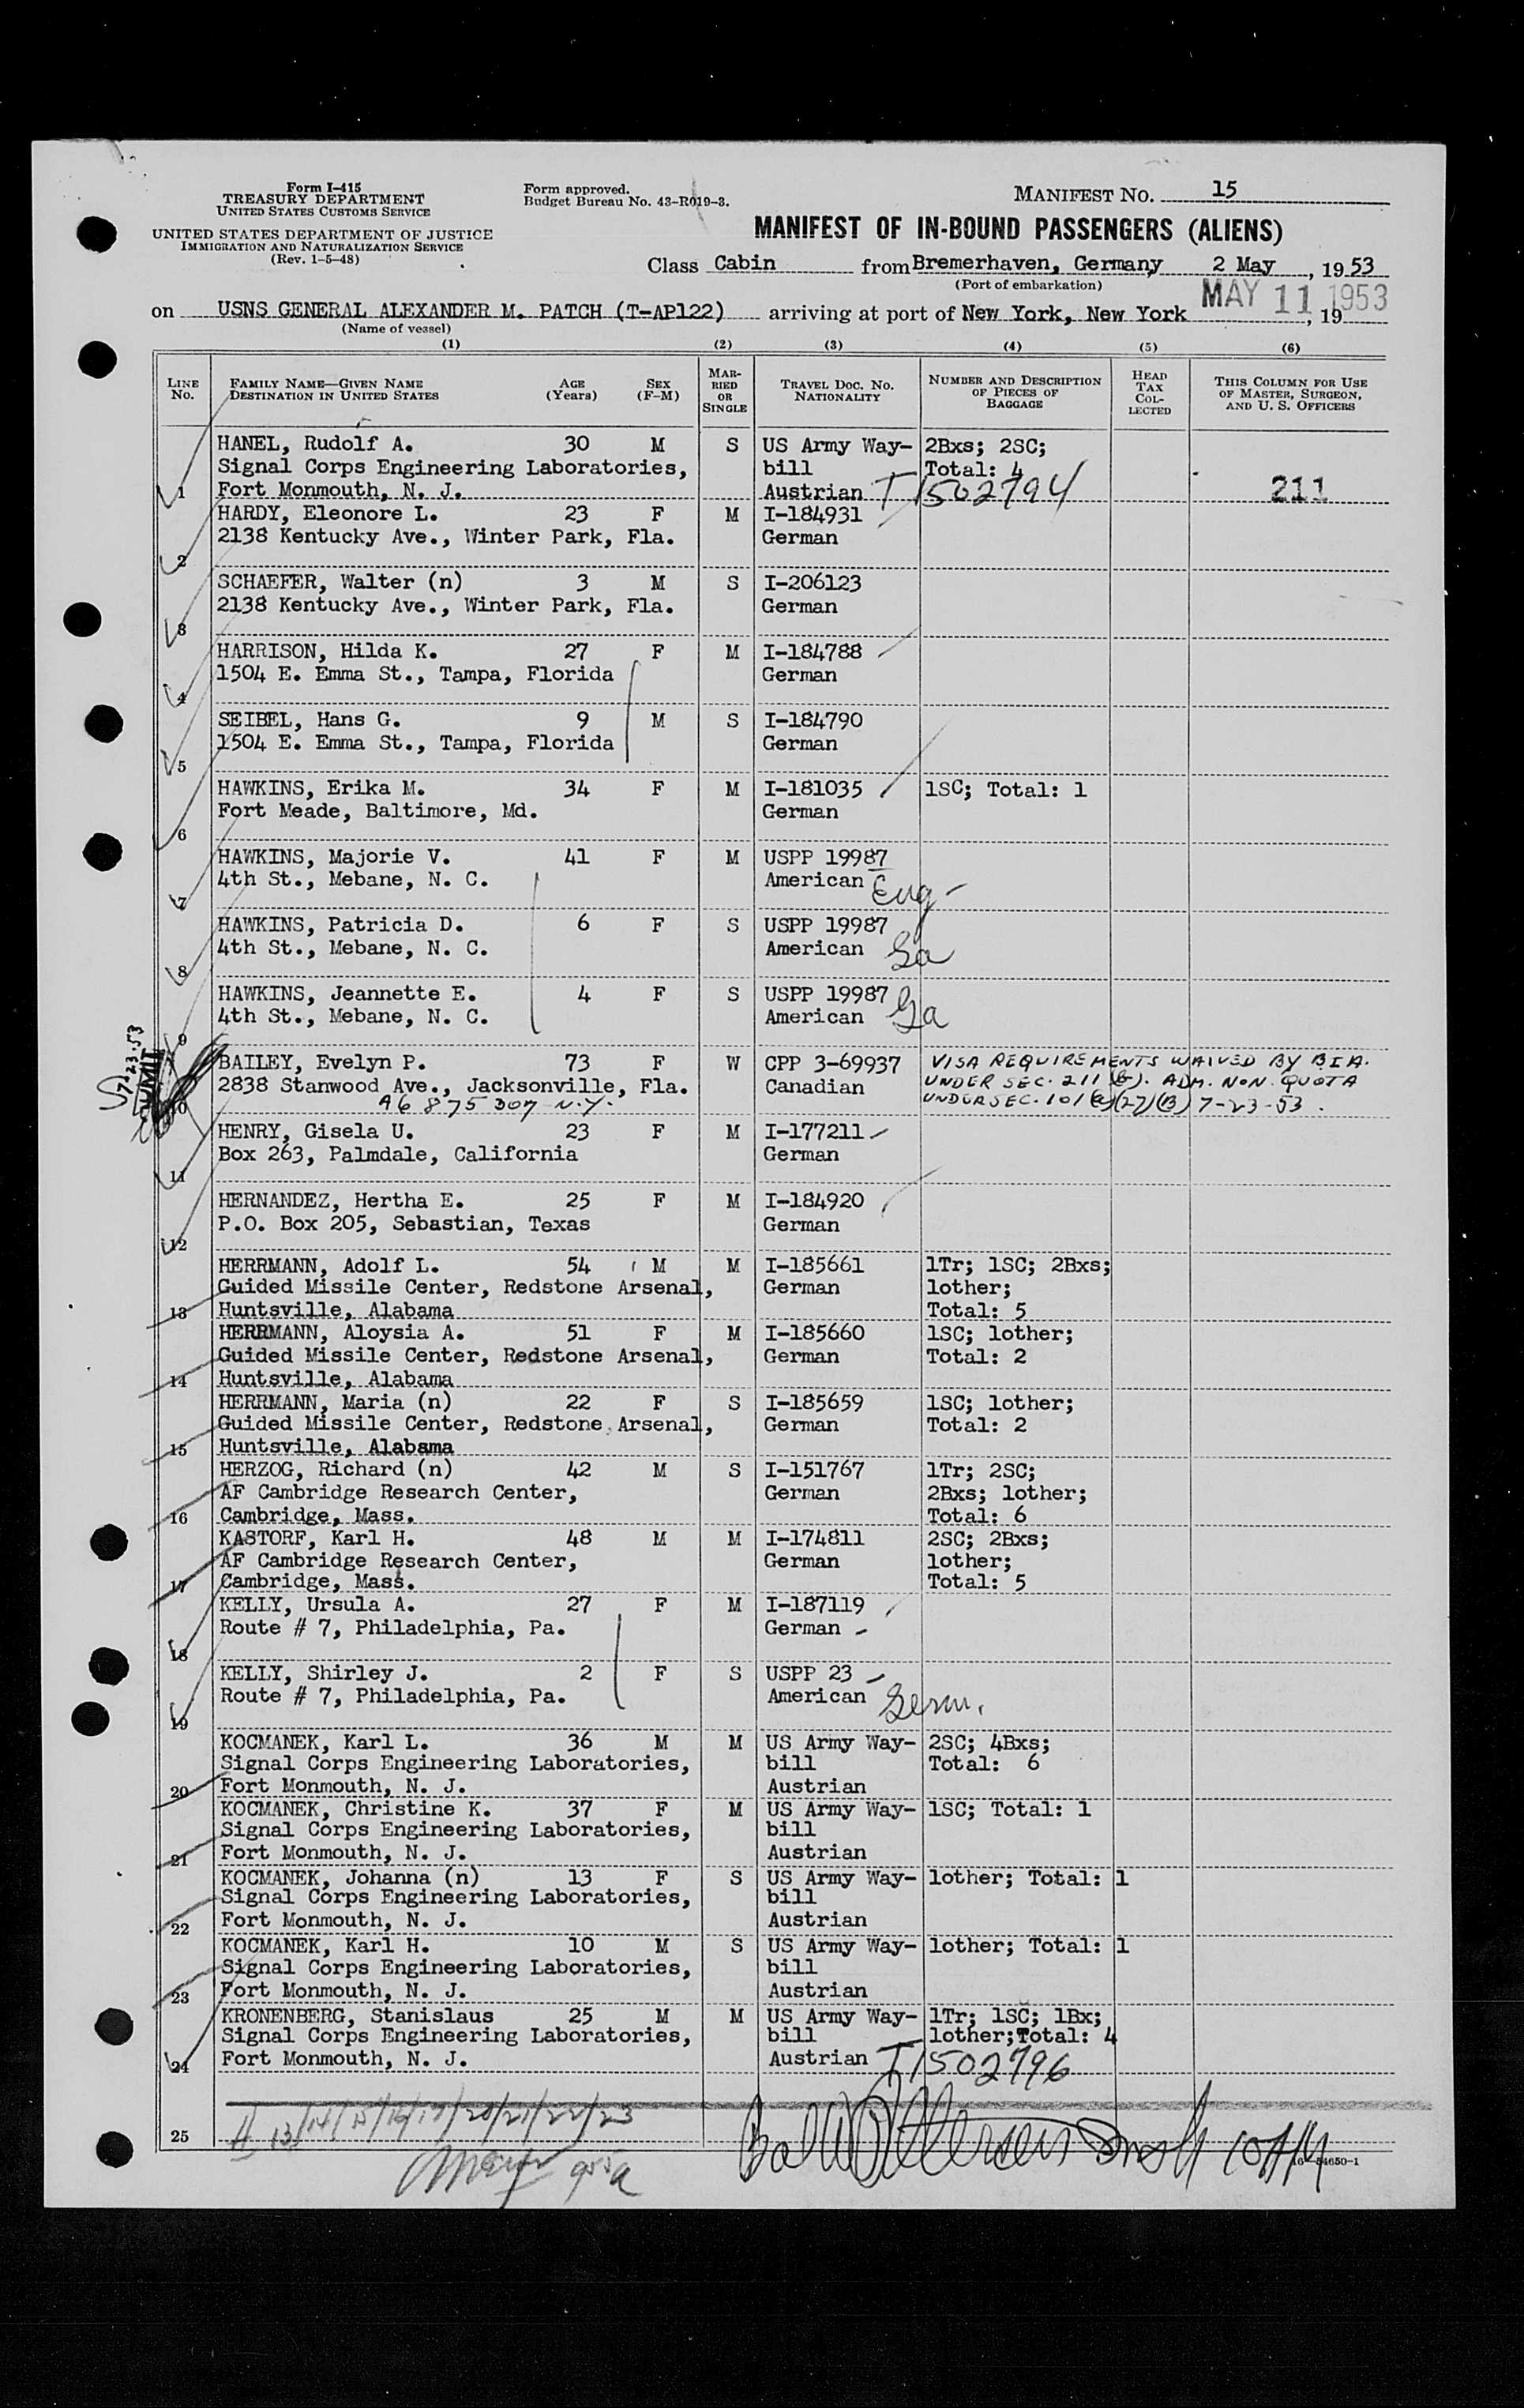 Form I-415
TREASURY DEPARTMENT
UNITED STATES CUSTOMS SERVICE
UNITED STATES DEPARTMENT OF JUSTICE
IMMIGRATION AND NATURALIZATION SERVICE
(Rev. 1-5-48)
Form approved.
Budget Bureau No. 43-R019-3.
MANIFEST NO. 15
MANIFEST OF IN-BOUND PASSENGERS (ALIENS)
Class Cabin from Bremerhaven, Germany 2 May, 1953
(Port of embarkation)
MAY 11 1953
on USNS GENERAL ALEXANDER M. PATCH (T-AP122) arriving at port of New York, New York, 19
(Name of vessel)
(1) (2) (3) (4) (5) (6)
LINE NO. FAMILY NAME—GIVEN NAME DESTINATION IN UNITED STATES AGE (Years) SEX (F-M) MARRIED OR SINGLE TRAVEL DOC. NO. NATIONALITY NUMBER AND DESCRIPTION OF PIECES OF BAGGAGE HEAD TAX COLLECTED THIS COLUMN FOR USE OF MASTER, SURGEON, AND U. S. OFFICERS
HANEL, Rudolf A. 30 M S US Army Way- 2Bxs; 2SC;
Signal Corps Engineering Laboratories, bill Total: 4
1 Fort Monmouth, N. J. Austrian T1502794 211
HARDY, Eleonore L. 23 F M I-184931
2138 Kentucky Ave., Winter Park, Fla. German
2
SCHAEFER, Walter (n) 3 M S I-206123
2138 Kentucky Ave., Winter Park, Fla. German
3
HARRISON, Hilda K. 27 F M I-184788
1504 E. Emma St., Tampa, Florida German
4
SEIBEL, Hans G. 9 M S I-184790
1504 E. Emma St., Tampa, Florida German
5
HAWKINS, Erika M. 34 F M I-181035 1SC; Total: 1
Fort Meade, Baltimore, Md. German
6
HAWKINS, Majorie V. 41 F M USPP 19987
4th St., Mebane, N. C. American Eng
7
HAWKINS, Patricia D. 6 F S USPP 19987
4th St., Mebane, N. C. American Ga
8
HAWKINS, Jeannette E. 4 F S USPP 19987
4th St., Mebane, N. C. American Ga
9
7-23-53
BAILEY, Evelyn P. 73 F W CPP 3-69937 VISA REQUIREMENTS WAIVED BY B.I.A.
2838 Stanwood Ave., Jacksonville, Fla. Canadian UNDER SEC. 211 (b). ADM. NON QUOTA
10 A6 875 307 N.Y. UNDER SEC. 101(a)(27)(B) 7-23-53.
HENRY, Gisela U. 23 F M I-177211
Box 263, Palmdale, California German
11
HERNANDEZ, Hertha E. 25 F M I-184920
P.O. Box 205, Sebastian, Texas German
12
HERRMANN, Adolf L. 54 M M I-185661 1Tr; 1SC; 2Bxs;
Guided Missile Center, Redstone Arsenal, German 1other;
13 Huntsville, Alabama Total: 5
HERRMANN, Aloysia A. 51 F M I-185660 1SC; 1other;
Guided Missile Center, Redstone Arsenal, German Total: 2
14 Huntsville, Alabama
HERRMANN, Maria (n) 22 F S I-185659 1SC; 1other;
Guided Missile Center, Redstone Arsenal, German Total: 2
15 Huntsville, Alabama
HERZOG, Richard (n) 42 M S I-151767 1Tr; 2SC;
AF Cambridge Research Center, German 2Bxs; 1other;
16 Cambridge, Mass. Total: 6
KASTORF, Karl H. 48 M M I-174811 2SC; 2Bxs;
AF Cambridge Research Center, German 1other;
17 Cambridge, Mass. Total: 5
KELLY, Ursula A. 27 F M I-187119
Route # 7, Philadelphia, Pa. German
18
KELLY, Shirley J. 2 F S USPP 23
Route # 7, Philadelphia, Pa. American Germ.
19
KOCMANEK, Karl L. 36 M M US Army Way- 2SC; 4Bxs;
Signal Corps Engineering Laboratories, bill Total: 6
20 Fort Monmouth, N. J. Austrian
KOCMANEK, Christine K. 37 F M US Army Way- 1SC; Total: 1
Signal Corps Engineering Laboratories, bill
21 Fort Monmouth, N. J. Austrian
KOCMANEK, Johanna (n) 13 F S US Army Way- 1other; Total: 1
Signal Corps Engineering Laboratories, bill
22 Fort Monmouth, N. J. Austrian
KOCMANEK, Karl H. 10 M S US Army Way- 1other; Total: 1
Signal Corps Engineering Laboratories, bill
23 Fort Monmouth, N. J. Austrian
KRONENBERG, Stanislaus 25 M M US Army Way- 1Tr; 1SC; 1Bx;
Signal Corps Engineering Laboratories, bill 1other; Total: 4
24 Fort Monmouth, N. J. Austrian T1502796
13/14/15/16/17/20/21/22/23
25
16-54650-1